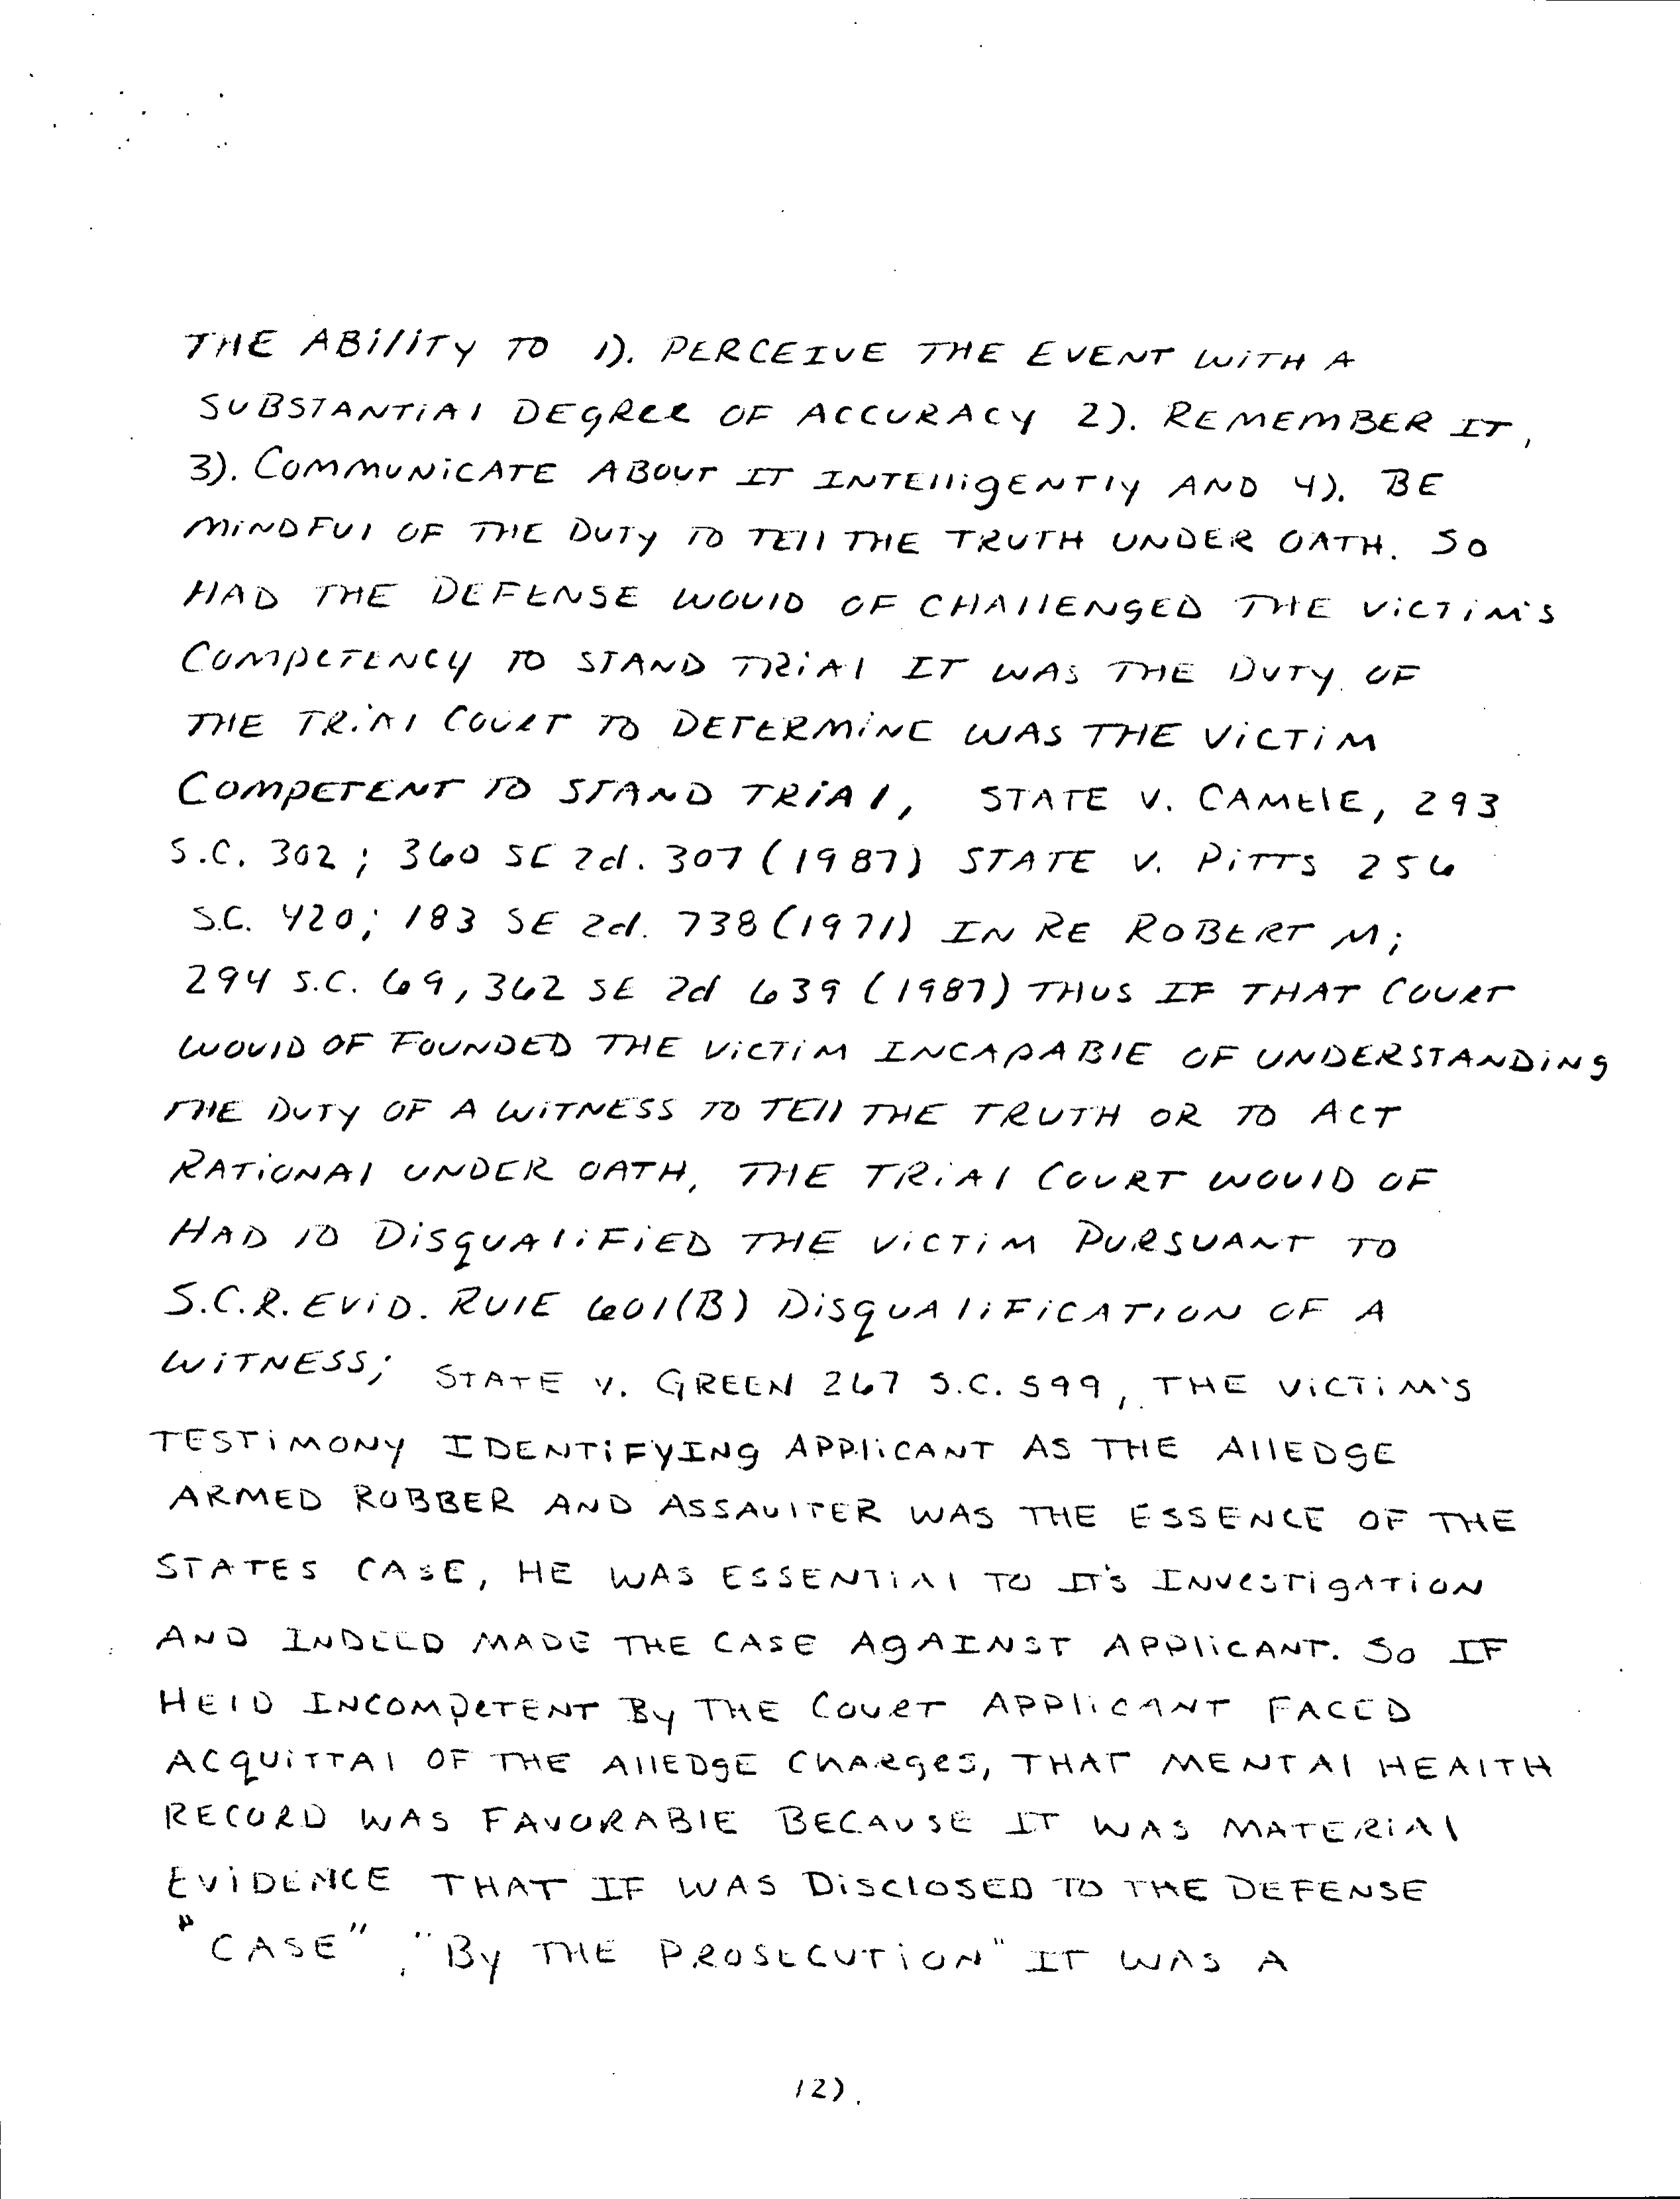 THE ABILITY TO 1). PERCEIVE THE EVENT WITH A
SUBSTANTIAL DEGREE OF ACCURACY 2). REMEMBER IT,
3). COMMUNICATE ABOUT IT INTELLIGENTLY AND 4). BE
MINDFUL OF THE DUTY TO TELL THE TRUTH UNDER OATH. SO
HAD THE DEFENSE WOULD OF CHALLENGED THE VICTIM'S
COMPETENCY TO STAND TRIAL IT WAS THE DUTY OF
THE TRIAL COURT TO DETERMINE WAS THE VICTIM
COMPETENT TO STAND TRIAL, STATE V. CAMELE, 293
S.C. 302; 360 SE 2d. 307 (1987) STATE V. PITTS 256
S.C. 420; 183 SE 2d. 738 (1971) IN RE ROBERT M;
294 S.C. 69, 362 SE 2d 639 (1987) THUS IF THAT COURT
WOULD OF FOUNDED THE VICTIM INCAPABLE OF UNDERSTANDING
THE DUTY OF A WITNESS TO TELL THE TRUTH OR TO ACT
RATIONAL UNDER OATH, THE TRIAL COURT WOULD OF
HAD TO DISQUALIFIED THE VICTIM PURSUANT TO
S.C.R. EVID. RULE 601(B) DISQUALIFICATION OF A
WITNESS; STATE V. GREEN 267 S.C. 599, THE VICTIM'S
TESTIMONY IDENTIFYING APPLICANT AS THE ALLEDGE
ARMED ROBBER AND ASSAULTER WAS THE ESSENCE OF THE
STATES CASE, HE WAS ESSENTIAL TO IT'S INVESTIGATION
AND INDEED MADE THE CASE AGAINST APPLICANT. SO IF
HELD INCOMPETENT BY THE COURT APPLICANT FACED
ACQUITTAL OF THE ALLEDGE CHARGES, THAT MENTAL HEALTH
RECORD WAS FAVORABLE BECAUSE IT WAS MATERIAL
EVIDENCE THAT IF WAS DISCLOSED TO THE DEFENSE
"CASE", "BY THE PROSECUTION" IT WAS A
12).